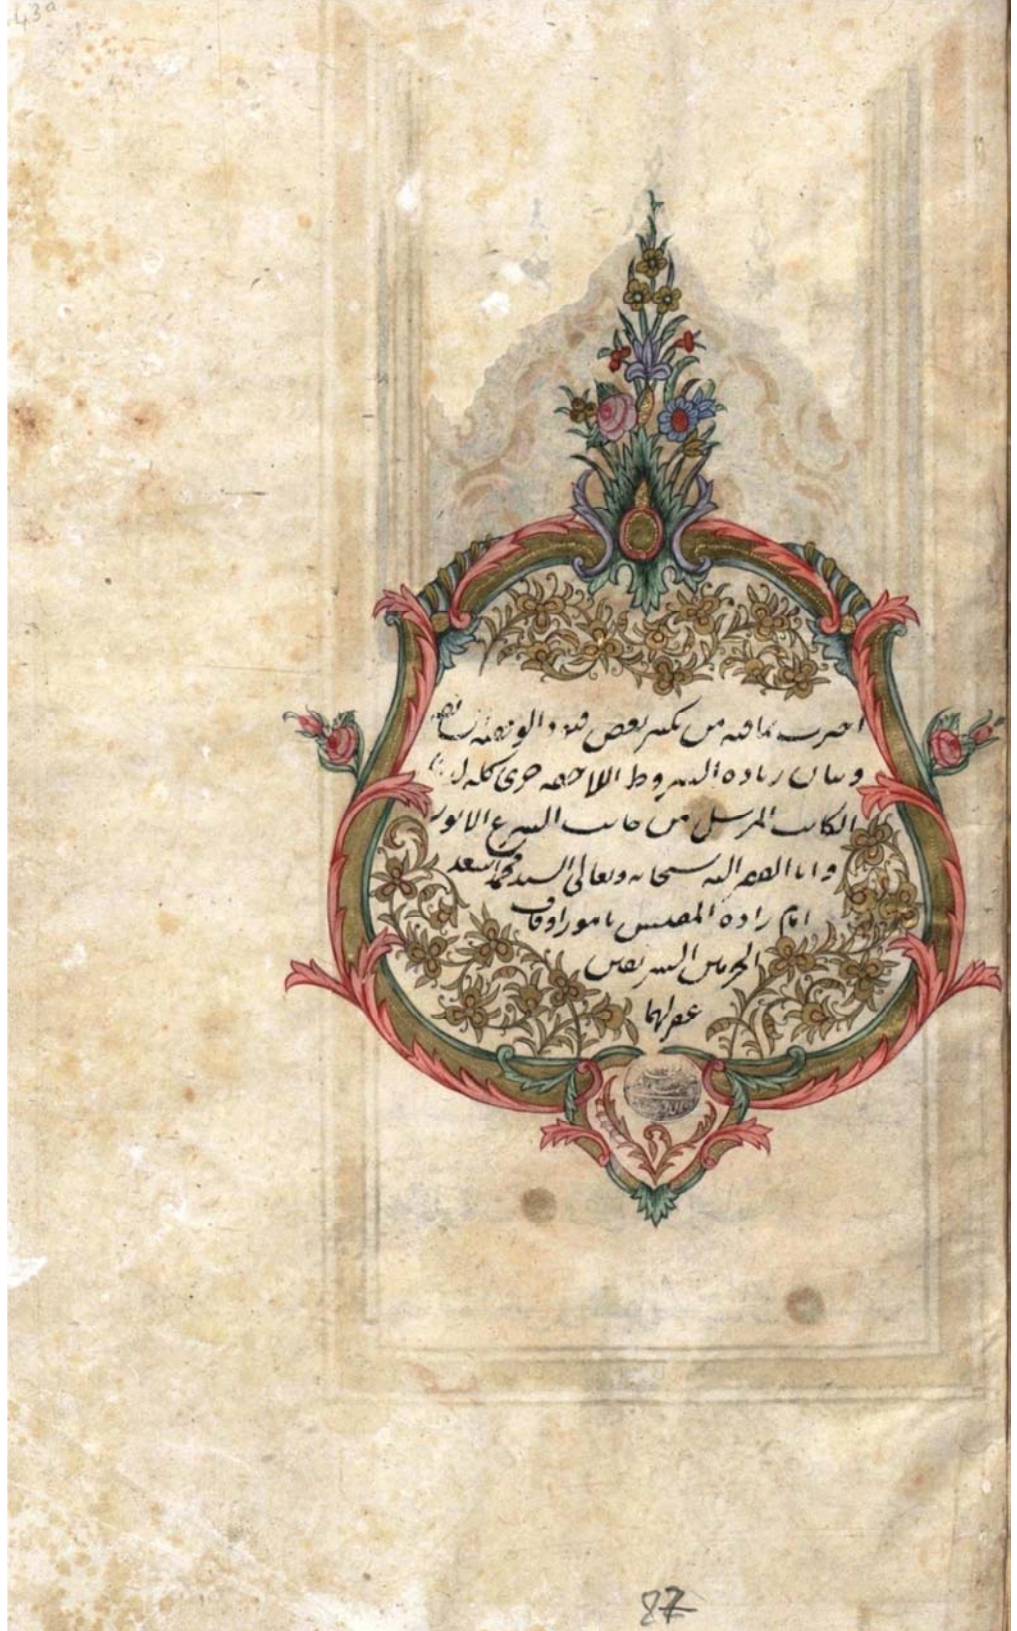 43a
ما فيه من تكثير بعض قيود الوقفية
وبيان زيادة الشروط اللاحقة جرى كله لدى
الكاتب المرسل من جانب الشرع الانور
وانا الفقير اليه سبحانه وتعالى السيد محمد اسعد
امام زاده المفتش بامور اوقاف
الحرمين الشريفين
غفر لهما
87